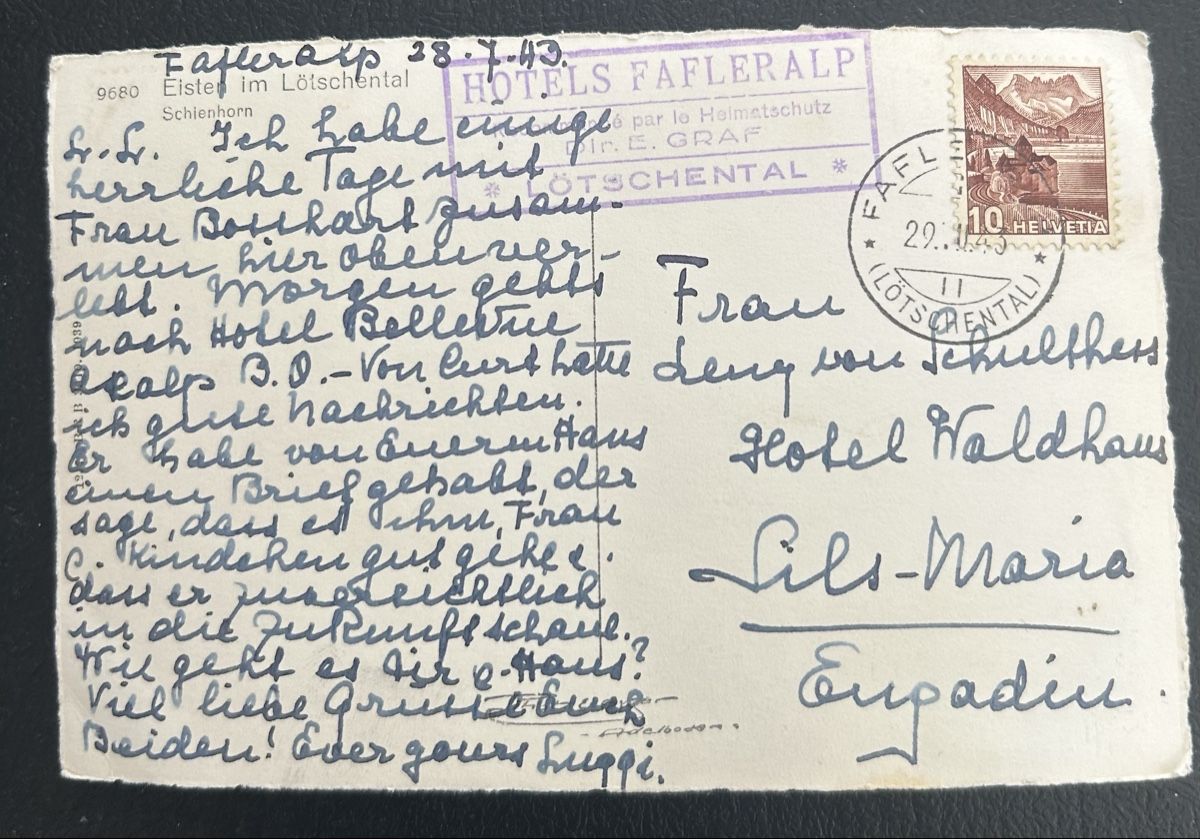 Fafleralp 28.7.43.
9680 Eisten im Lötschental
Schienhorn
HOTELS FAFLERALP
par le Heimatschutz
Dir. E. GRAF
* LÖTSCHENTAL *
Ich habe einige
herrliche Tage mit
Frau Bosshart zusam-
men hier oben ver-
lebt. Morgen gehts
nach Hotel Bellevue
Axalp B.O. - Von Curt hatte
ich gute Nachrichten.
Er habe von Euerm Hans
einen Brief gehabt, der
sage, dass es ihm, Frau
& Kindchen gut gehe &
dass er zuversichtlich
in die Zukunft schaue.
Wie geht es Dir & Hans?
Viel liebe Grüsse Euch
Beiden! Ever yours Luggi.
Adelboden
10 HELVETIA
FAFL
29. 43
(LÖTSCHENTAL)
Frau
Leny von Schulthess
Hotel Waldhaus
Sils-Maria
Engadin.